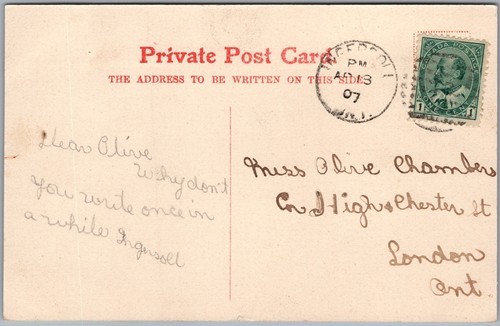 Private Post Card
THE ADDRESS TO BE WRITTEN ON THIS SIDE
INGERSOLL
PM
AP 18
07
ONT.
CANADA POSTAGE
1 1
Dear Olive
Why don't
you write once in
a while Ingersoll
Miss Olive Chambers
Cor High & Chester St
London
Ont.